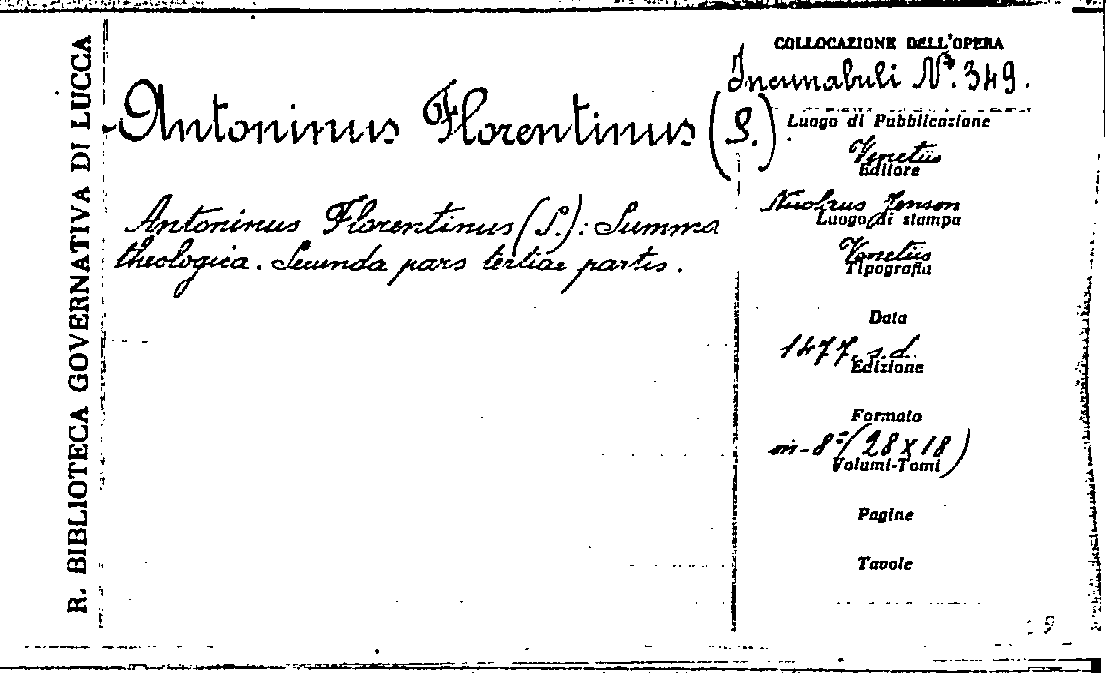 R. BIBLIOTECA GOVERNATIVA DI LUCCA
Antoninus Florentinus (S.)
Antoninus Florentinus (S.): Summa
theologica. Secunda pars tertiae partis.
COLLOCAZIONE DELL'OPERA
Incunabuli N.º 349.
Luogo di Pubblicazione
Venetiis
Editore
Nicolaus Jenson
Luogo di stampa
Venetiis
Tipografia
Data
1477, s.d.
Edizione
Formato
in-8º (28x18)
Volumi-Tomi
Pagine
Tavole